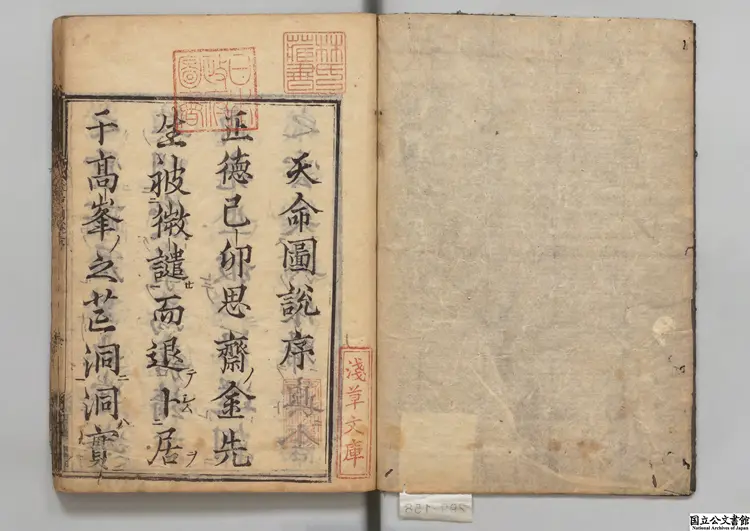 天命圖說序
正德己卯思齋金先
生被微譴而退卜居
于高峯之芒洞洞實
林氏藏書
日本政府圖書
淺草文庫
国立公文書館
National Archives of Japan